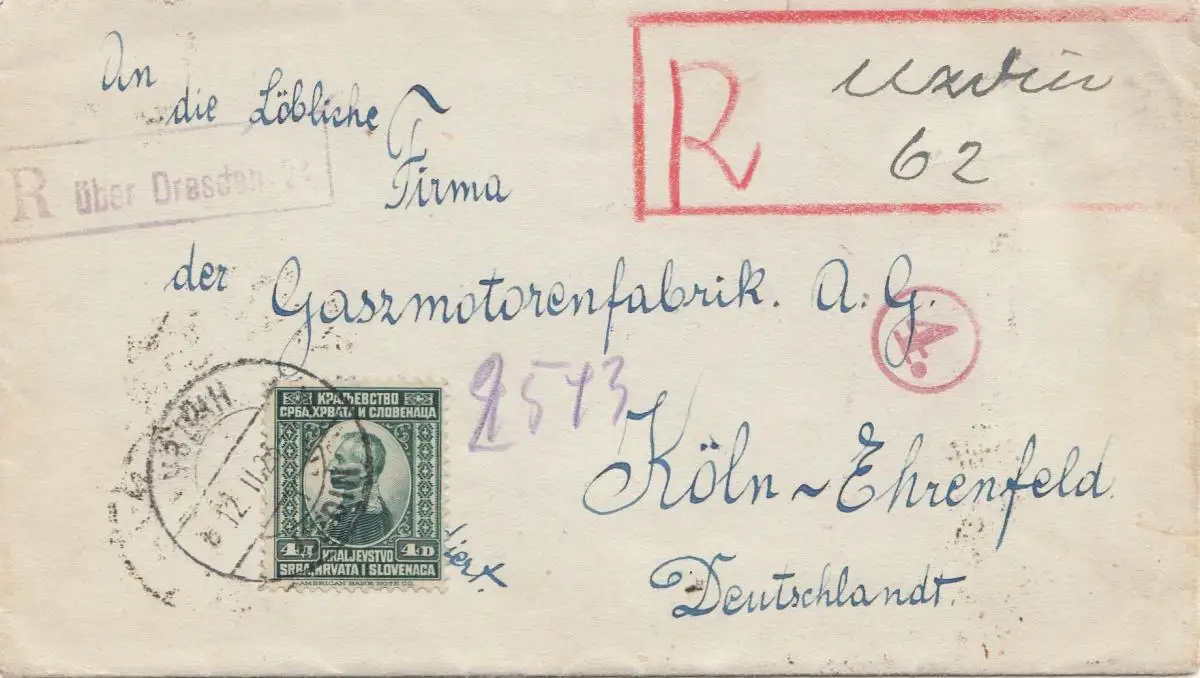 An
die Löbliche
Firma
R über Dresden 24
R Uzdin
62
der Gaszmotorenfabrik. A. G.
2543
Köln ~ Ehrenfeld
Deutschlandt.
УЗДИН
12. II. 2
UZDIN
КРАЉЕВСТВО
СРБА, ХРВАТА И СЛОВЕНАЦА
4Д 4D
KRALJEVSTVO
SRBA, HRVATA I SLOVENACA
AMERICAN BANK NOTE CO.